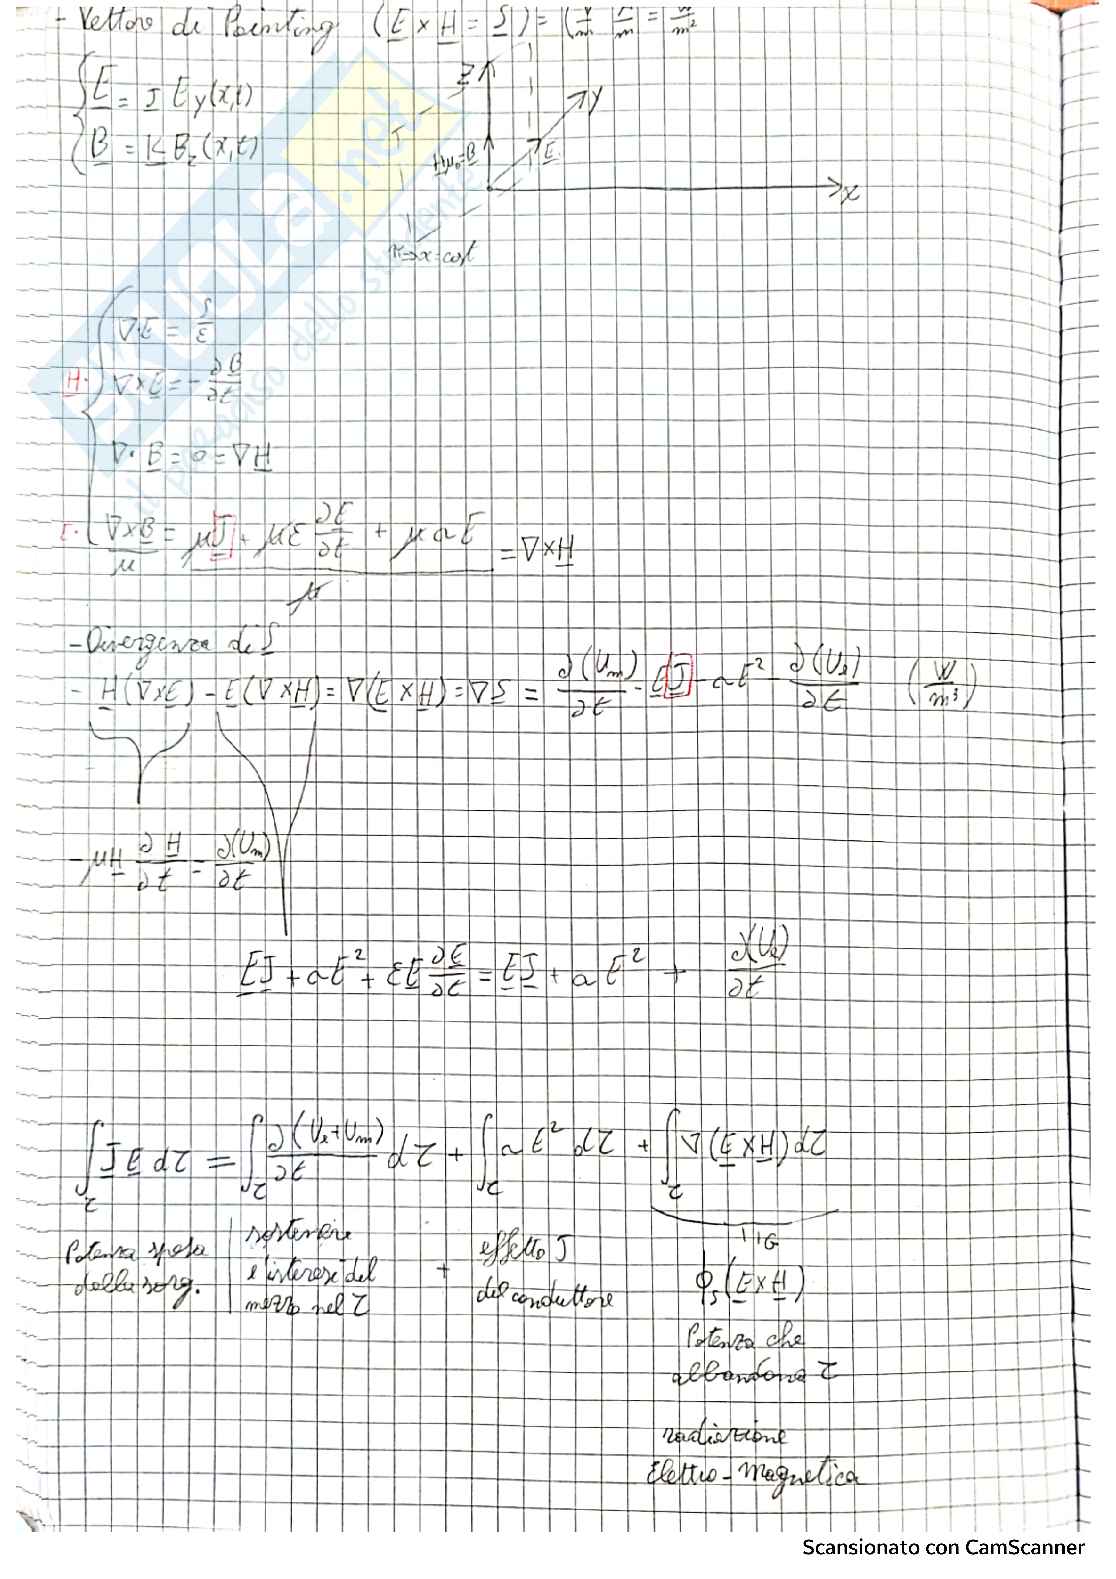 - Vettore di Pointing (E × H = S) = (V/m A/m = W/m²
{ E = J Ey(x,t)
{ B = K Bz(x,t)
Z
Y
Hμ₀=B
E
X
π→x=cost
∇·E = ρ/ε
H· ∇×E = - ∂B/∂t
∇·B = 0 = ∇H
E· ∇×B/μ = (μJ + με ∂E/∂t + μσE)/μ = ∇×H
- Divergenza di S
- H(∇×E) - E(∇×H) = ∇(E×H) = ∇S = ∂(Um)/∂t - EJ - σE² - ∂(Ue)/∂t (W/m³)
- μH ∂H/∂t = ∂(Um)/∂t
EJ + σE² + εE ∂E/∂t = EJ + σE² + ∂(Ue)/∂t
∫τ J E dτ = ∫τ ∂(Ue+Um)/∂t dτ + ∫τ σE² dτ + ∫τ ∇(E×H)dτ
Potenza spesa dalla sorg. | sostenere l'interesse del mezzo nel τ + effetto J del conduttore
|| G
ϕs(E×H)
Potenza che
abbandona τ
radiazione
Elettro-magnetica
SKUOLA.net
il paradiso dello studente
Scansionato con CamScanner